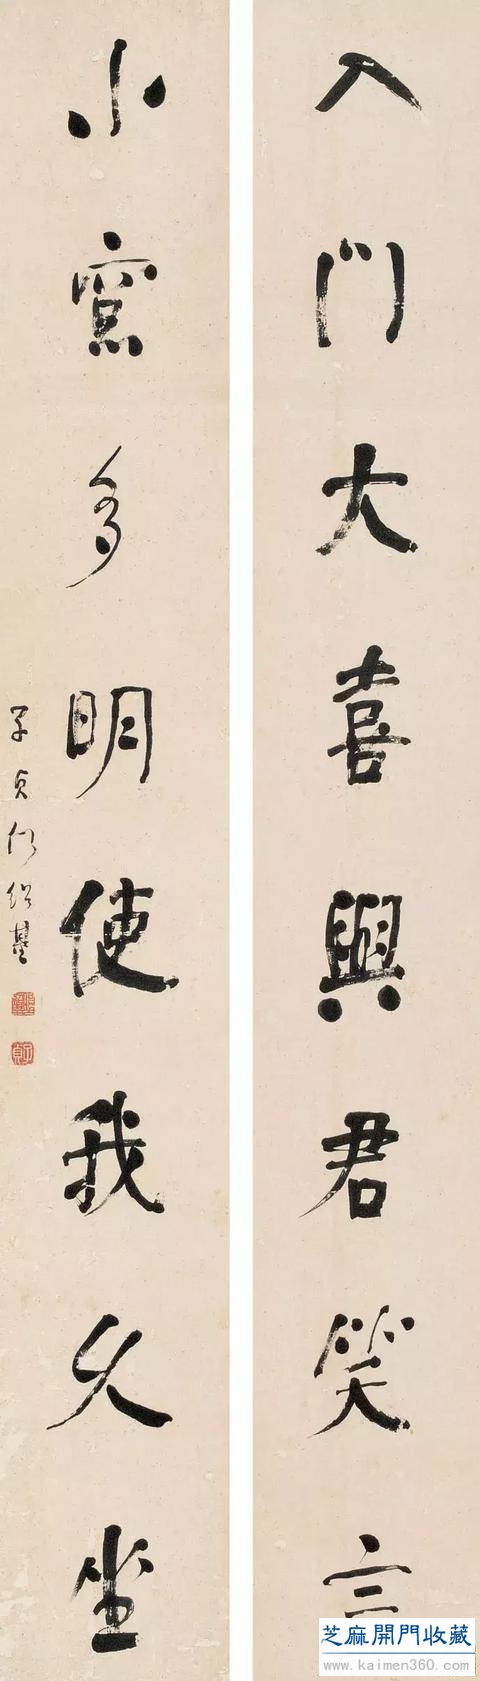 入門大喜與君笑言
小窗多明使我久坐
子貞何紹基
子貞
芝麻開門收藏
www.kaimen360.com